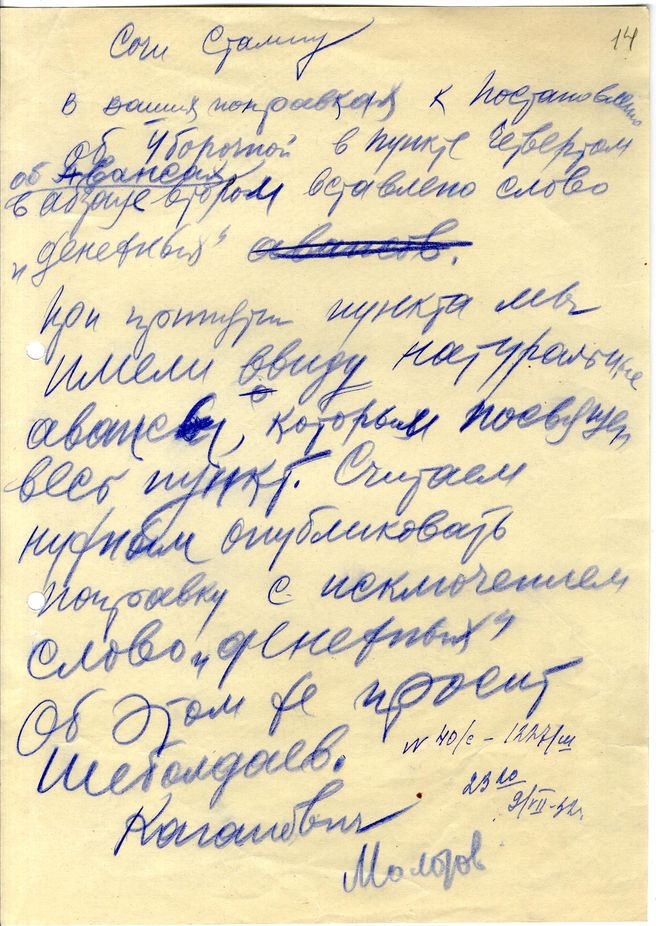 14
Сочи Сталину
В ваших поправках к Постановлению
об Уборочной в пункте четвертом
об Авансах
в абзаце втором вставлено слово
„денежных“ авансов.
При принятии пункта мы
имели ввиду натуральные
авансы, которым посвящен
весь пункт. Считаем
нужным опубликовать
поправку с исключением
слово „денежных“
Об этом же просит
Шеболдаев.
N 40/с – 1227/ш
23 20
9/VII-32г.
Каганович
Молотов